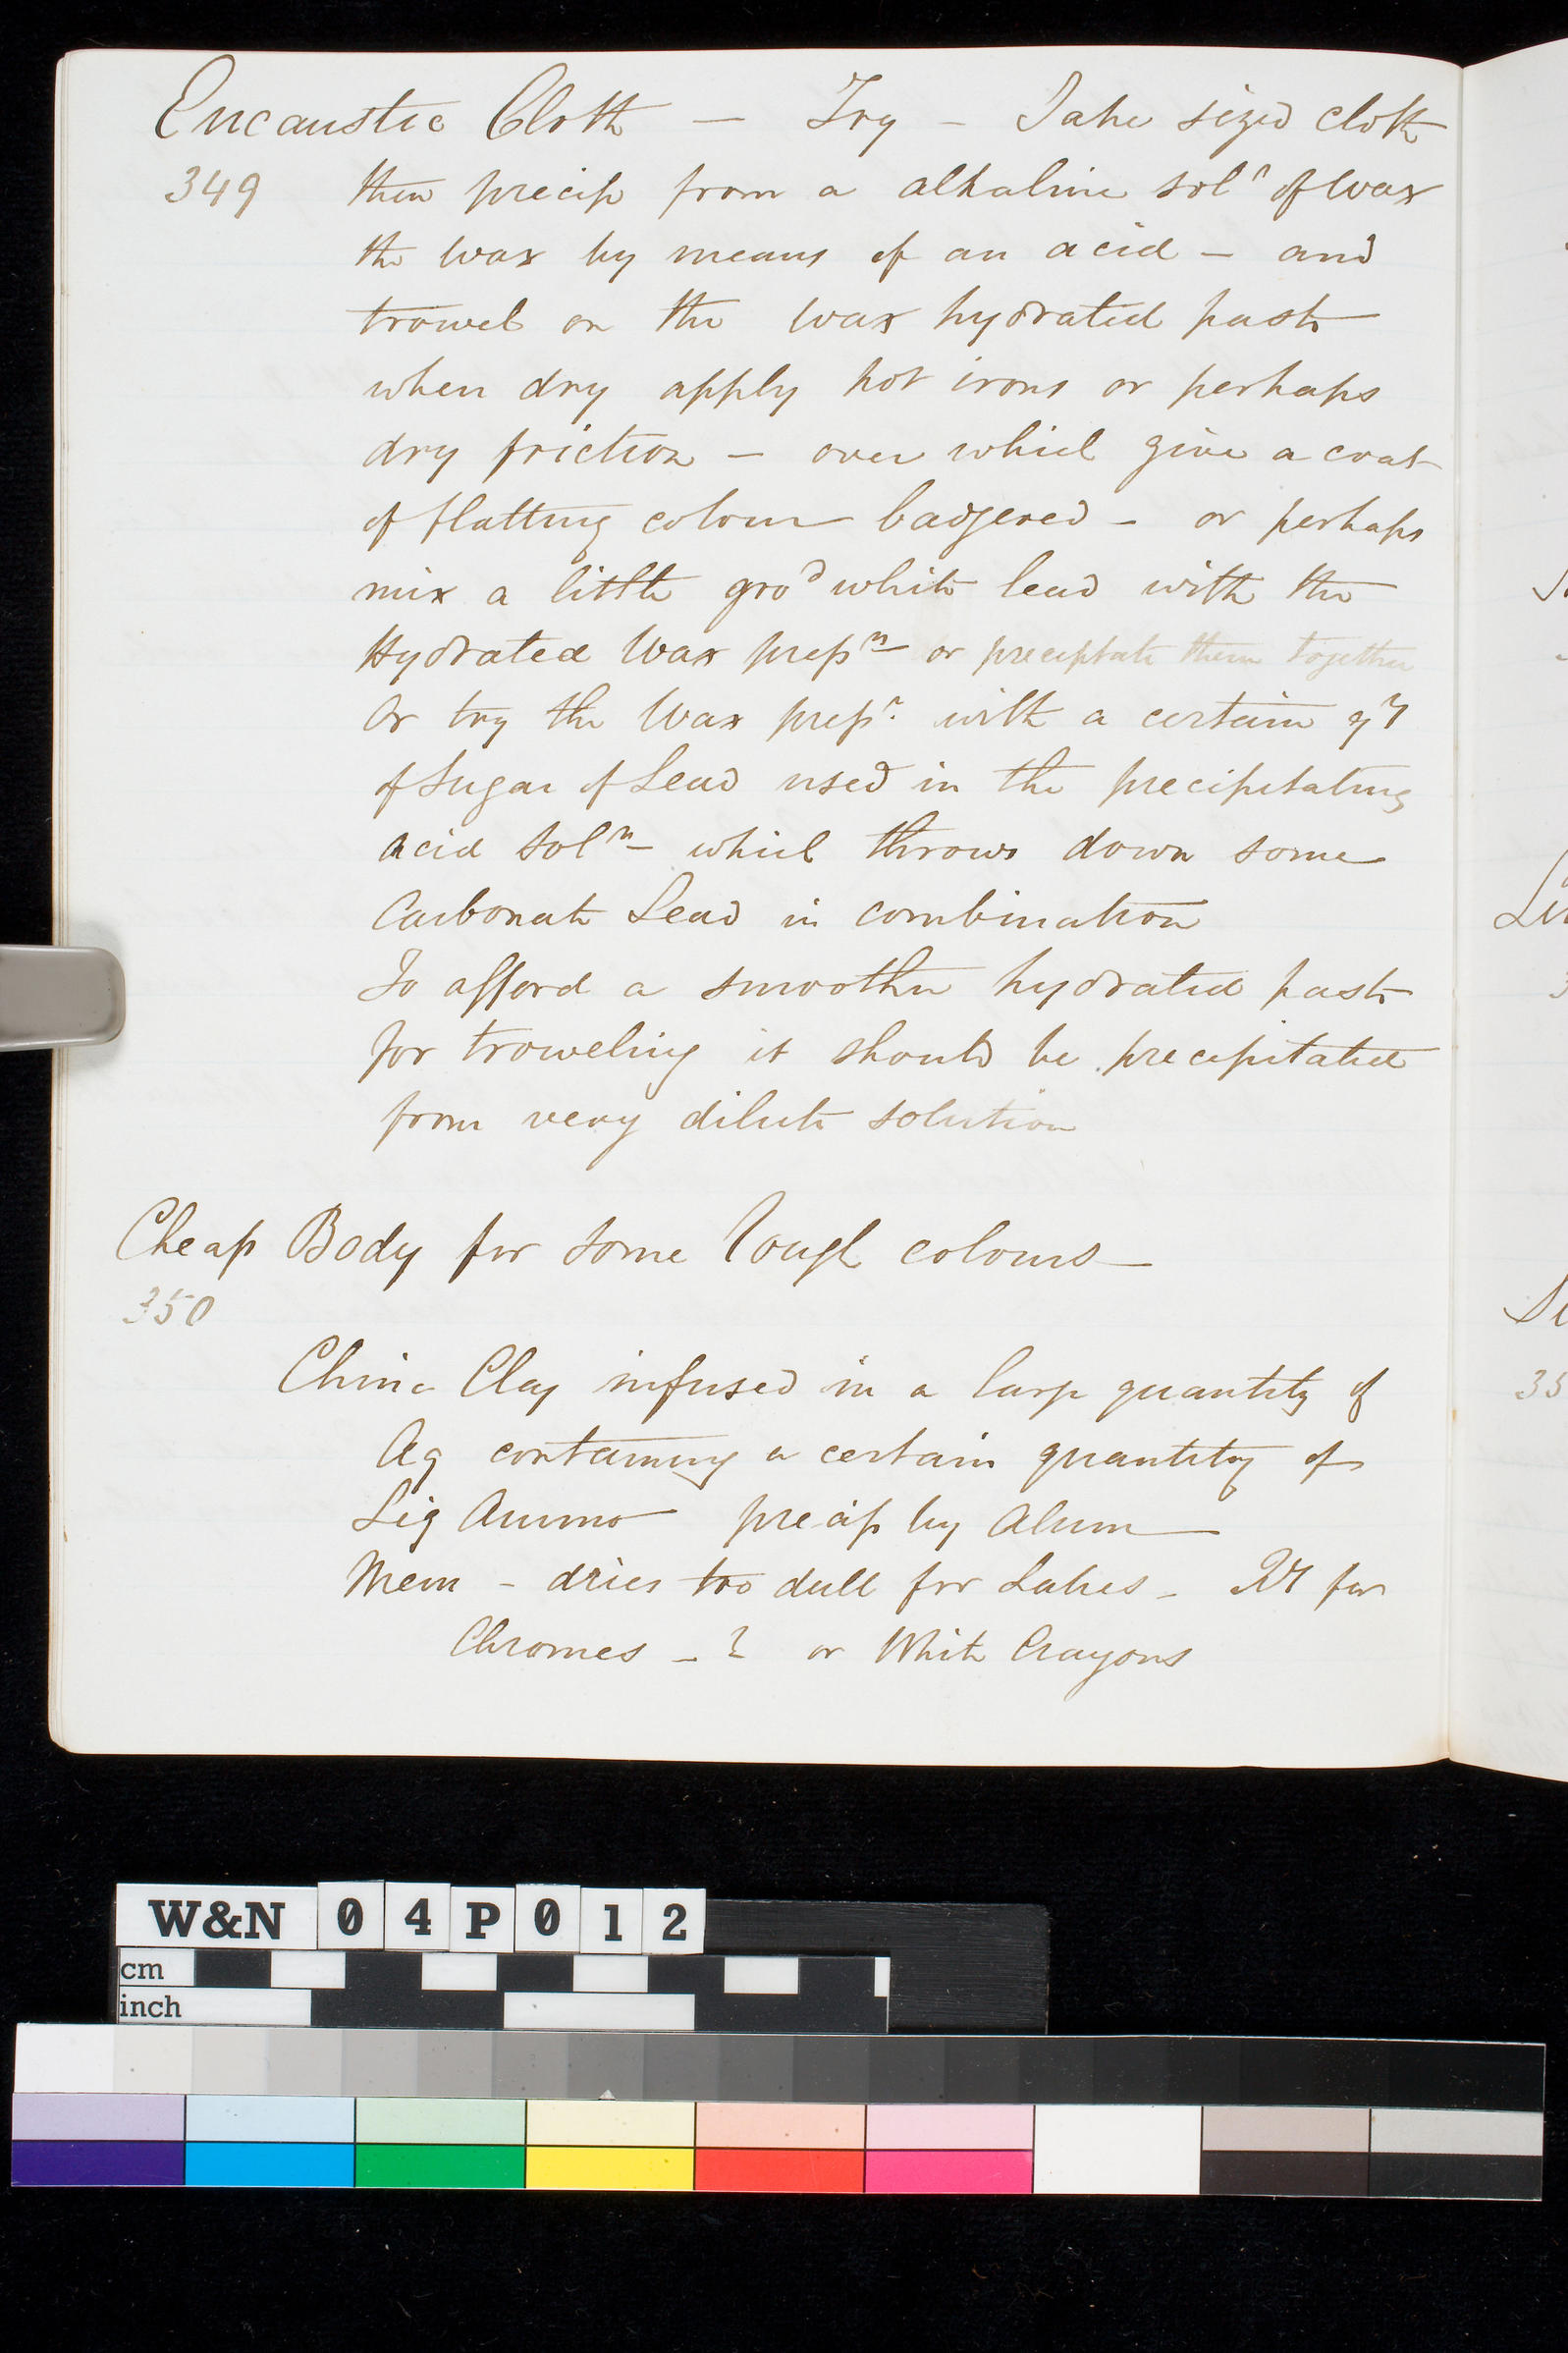 Encaustic Cloth — Try — Take sized cloth
349 then precip from a alkaline solⁿ of wax
the wax by means of an acid — and
trowel on the wax hydrated paste
when dry apply hot irons or perhaps
dry friction — over which give a coat
of flatting colour badgered — or perhaps
mix a little groᵈ white lead with the
Hydrated Wax prepⁿ or precipitate them together
Or try the Wax prepⁿ. with a certain qʸ
of Sugar of Lead used in the precipitating
acid solⁿ — which throws down some
Carbonate Lead in combination
To afford a smoother hydrated paste
for troweling it should be precipitated
from very dilute solution
Cheap Body for some rough colours —
350
China Clay infused in a large quantity of
Aq containing a certain quantity of
Liq Ammo precip by Alum
Mem — dries too dull for Lakes — Qʸ for
Chromes — ? or White Crayons
35
W&N 04P012
cm
inch